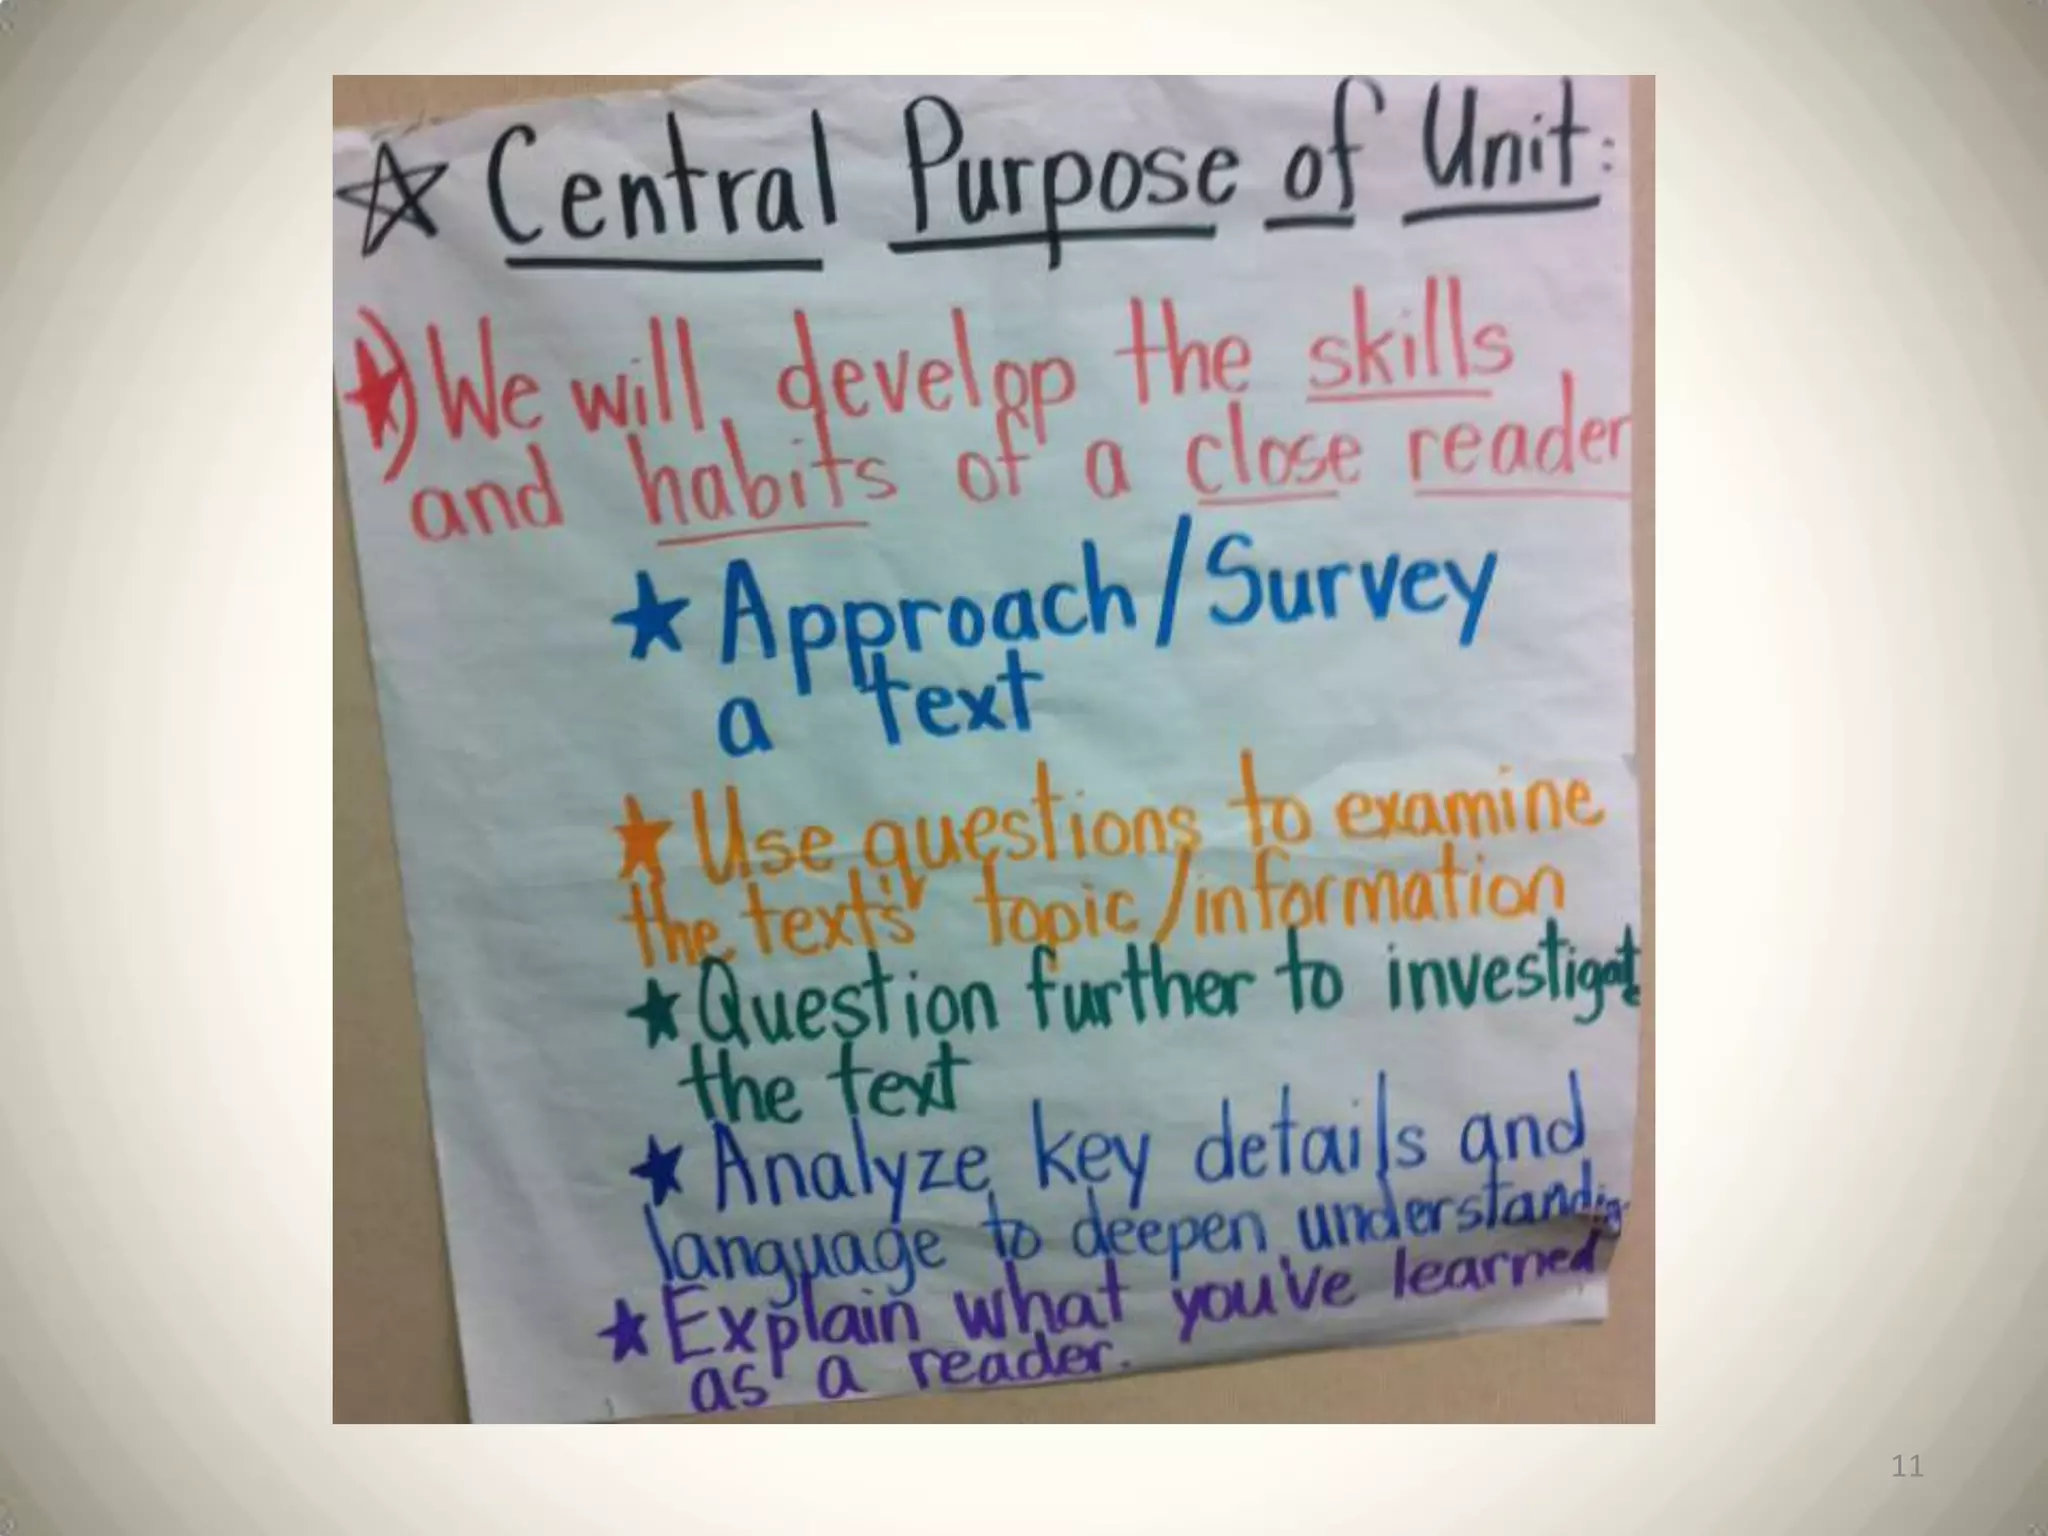 ☆ Central Purpose of Unit:
★) We will develop the skills
and habits of a close reader
★ Approach/Survey
a text
★ Use questions to examine
the text's topic/information
★ Question further to investigate
the text
★ Analyze key details and
language to deepen understanding
★ Explain what you've learned
as a reader.
11